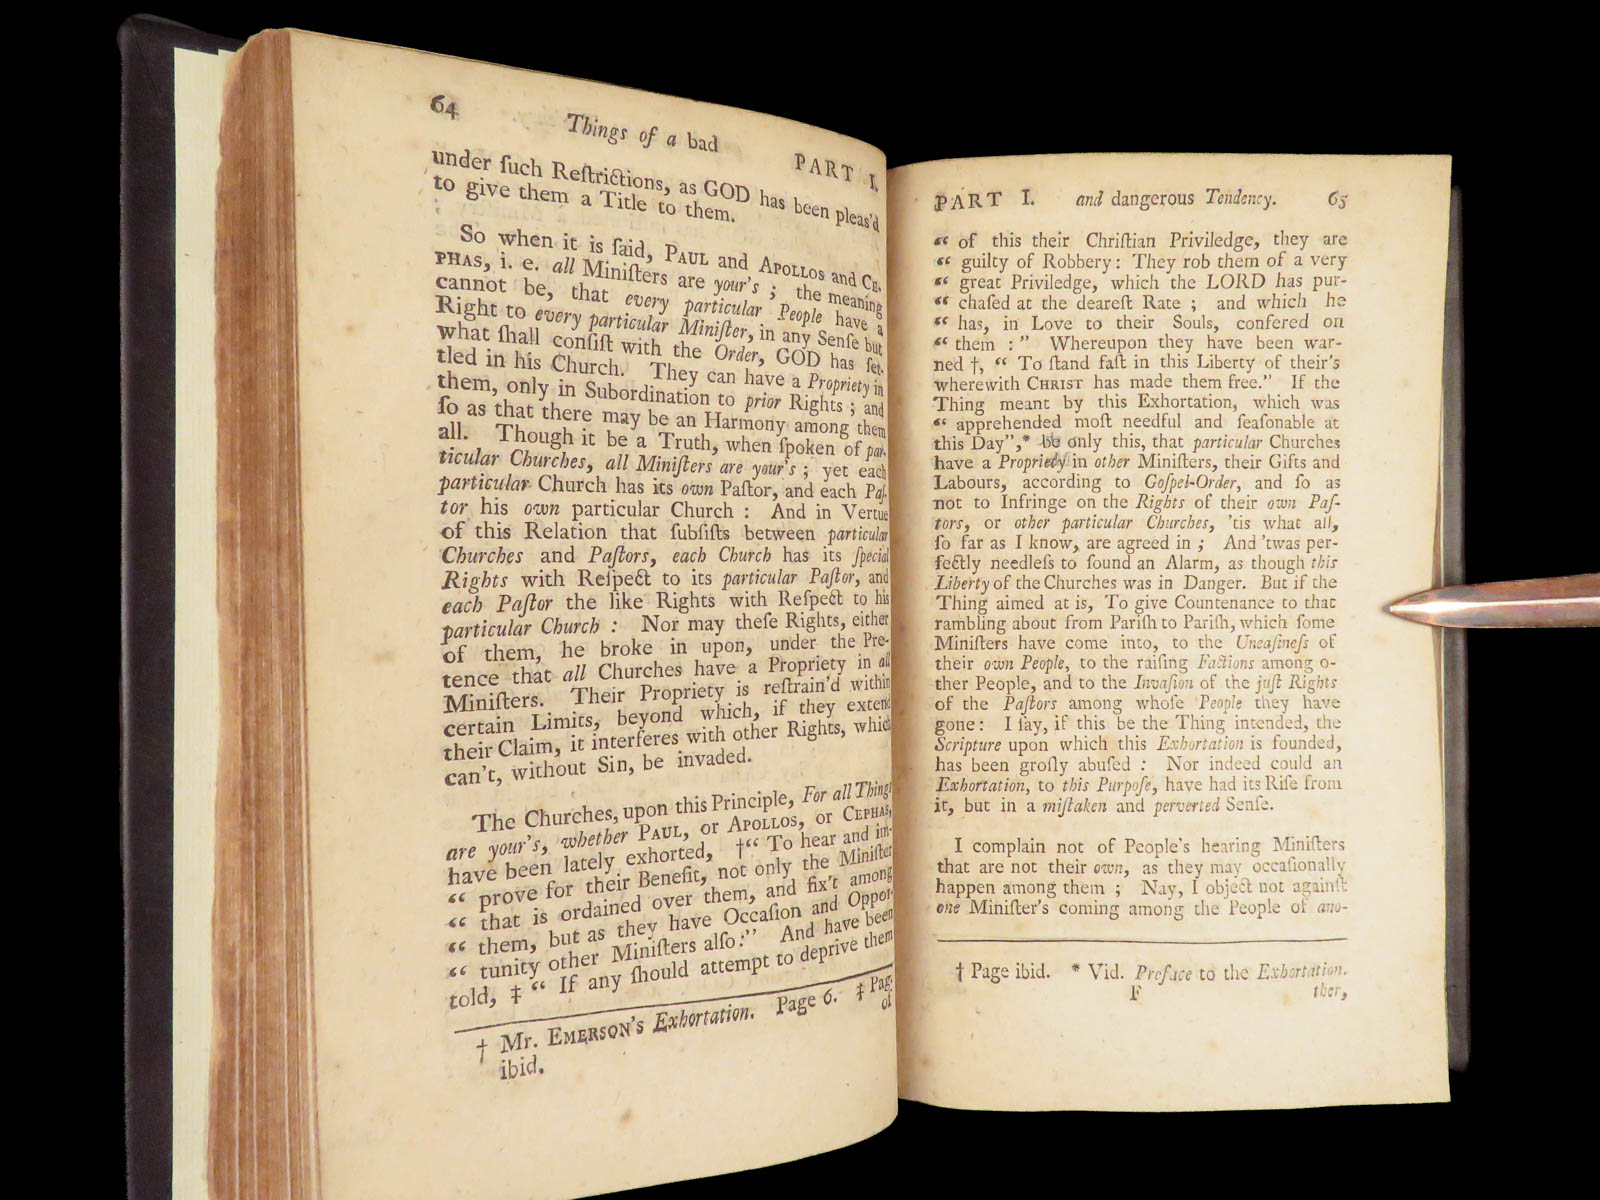 64 Things of a bad PART I.
under ſuch Reſtrictions, as GOD has been pleas'd
to give them a Title to them.
So when it is ſaid, PAUL and APOLLOS and CE-
PHAS, i. e. all Miniſters are your's ; the meaning
cannot be, that every particular People have a
Right to every particular Miniſter, in any Senſe but
what ſhall conſiſt with the Order, GOD has ſet-
tled in his Church. They can have a Propriety in
them, only in Subordination to prior Rights ; and
ſo as that there may be an Harmony among them
all. Though it be a Truth, when ſpoken of par-
ticular Churches, all Miniſters are your's ; yet each
particular Church has its own Paſtor, and each Paſ-
tor his own particular Church : And in Vertue
of this Relation that ſubſiſts between particular
Churches and Paſtors, each Church has its ſpecial
Rights with Reſpect to its particular Paſtor, and
each Paſtor the like Rights with Reſpect to his
particular Church : Nor may theſe Rights, either
of them, be broke in upon, under the Pre-
tence that all Churches have a Propriety in all
Miniſters. Their Propriety is reſtrain'd within
certain Limits, beyond which, if they extend
their Claim, it interferes with other Rights, which
can't, without Sin, be invaded.
The Churches, upon this Principle, For all Things
are your's, whether PAUL, or APOLLOS, or CEPHAS,
have been lately exhorted, †“ To hear and im-
“ prove for their Benefit, not only the Miniſter
“ that is ordained over them, and fix't among
“ them, but as they have Occaſion and Oppor-
“ tunity other Miniſters alſo:” And have been
told, ‡ “ If any ſhould attempt to deprive them
† Mr. EMERSON'S Exhortation. Page 6. ‡ Pag.
ibid. of
PART I. and dangerous Tendency. 65
“ of this their Chriſtian Priviledge, they are
“ guilty of Robbery: They rob them of a very
“ great Priviledge, which the LORD has pur-
“ chaſed at the deareſt Rate ; and which he
“ has, in Love to their Souls, confered on
“ them :” Whereupon they have been war-
ned †, “ To ſtand faſt in this Liberty of their's
wherewith CHRIST has made them free.” If the
Thing meant by this Exhortation, which was
“ apprehended moſt needful and ſeaſonable at
this Day”,* be only this, that particular Churches
have a Propriety in other Miniſters, their Gifts and
Labours, according to Goſpel-Order, and ſo as
not to Infringe on the Rights of their own Paſ-
tors, or other particular Churches, 'tis what all,
ſo far as I know, are agreed in ; And 'twas per-
fectly needleſs to ſound an Alarm, as though this
Liberty of the Churches was in Danger. But if the
Thing aimed at is, To give Countenance to that
rambling about from Pariſh to Pariſh, which ſome
Miniſters have come into, to the Uneaſineſs of
their own People, to the raiſing Factions among o-
ther People, and to the Invaſion of the juſt Rights
of the Paſtors among whoſe People they have
gone : I ſay, if this be the Thing intended, the
Scripture upon which this Exhortation is founded,
has been groſly abuſed : Nor indeed could an
Exhortation, to this Purpoſe, have had its Riſe from
it, but in a miſtaken and perverted Senſe.
I complain not of People's hearing Miniſters
that are not their own, as they may occaſionally
happen among them ; Nay, I object not againſt
one Miniſter's coming among the People of ano-
† Page ibid. * Vid. Preface to the Exhortation.
F ther,